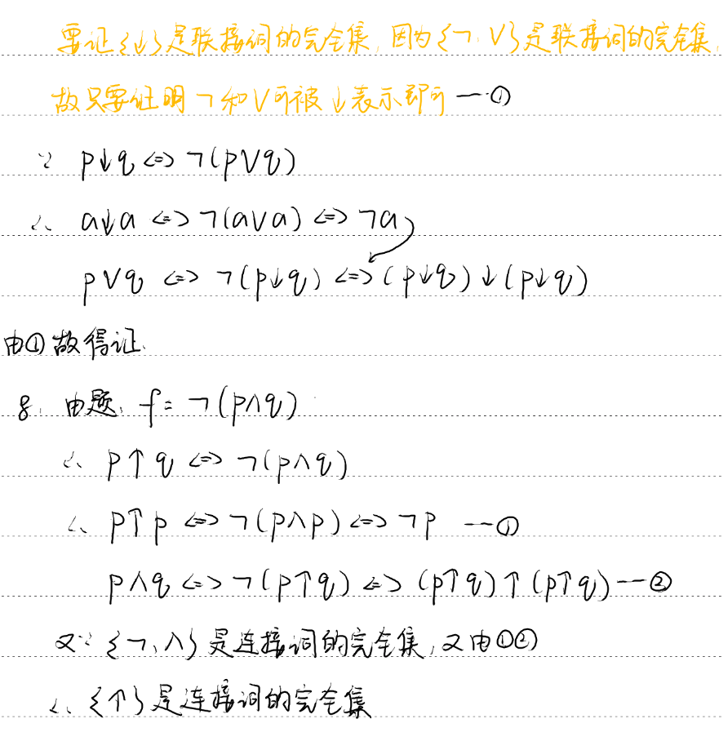 要证{↓}是联接词的完全集,因为{¬,∨}是联接词的完全集,
故只要证明¬和∨可被↓表示即可 —①
∵ p↓q <=> ¬(p∨q)
∴ a↓a <=> ¬(a∨a) <=> ¬a
p∨q <=> ¬(p↓q) <=> (p↓q)↓(p↓q)
由①故得证.
8. 由题, f = ¬(p∧q)
∴ p↑q <=> ¬(p∧q)
∴ p↑p <=> ¬(p∧p) <=> ¬p —①
p∧q <=> ¬(p↑q) <=> (p↑q)↑(p↑q) —②
又∵{¬,∧}是连接词的完全集,又由①②
∴{↑}是连接词的完全集